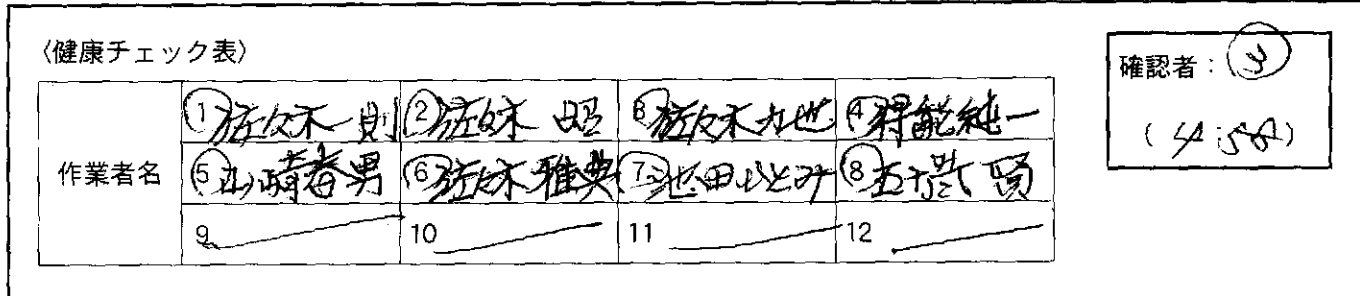 〈健康チェック表〉
確認者：
(4:58)
作業者名
①佐々木一則 ②佐々木 昭 ③佐々木九也 ④得能純一
⑤山崎春男 ⑥佐々木雅典 ⑦池田ひとみ ⑧五十嵐 賢
9 10 11 12